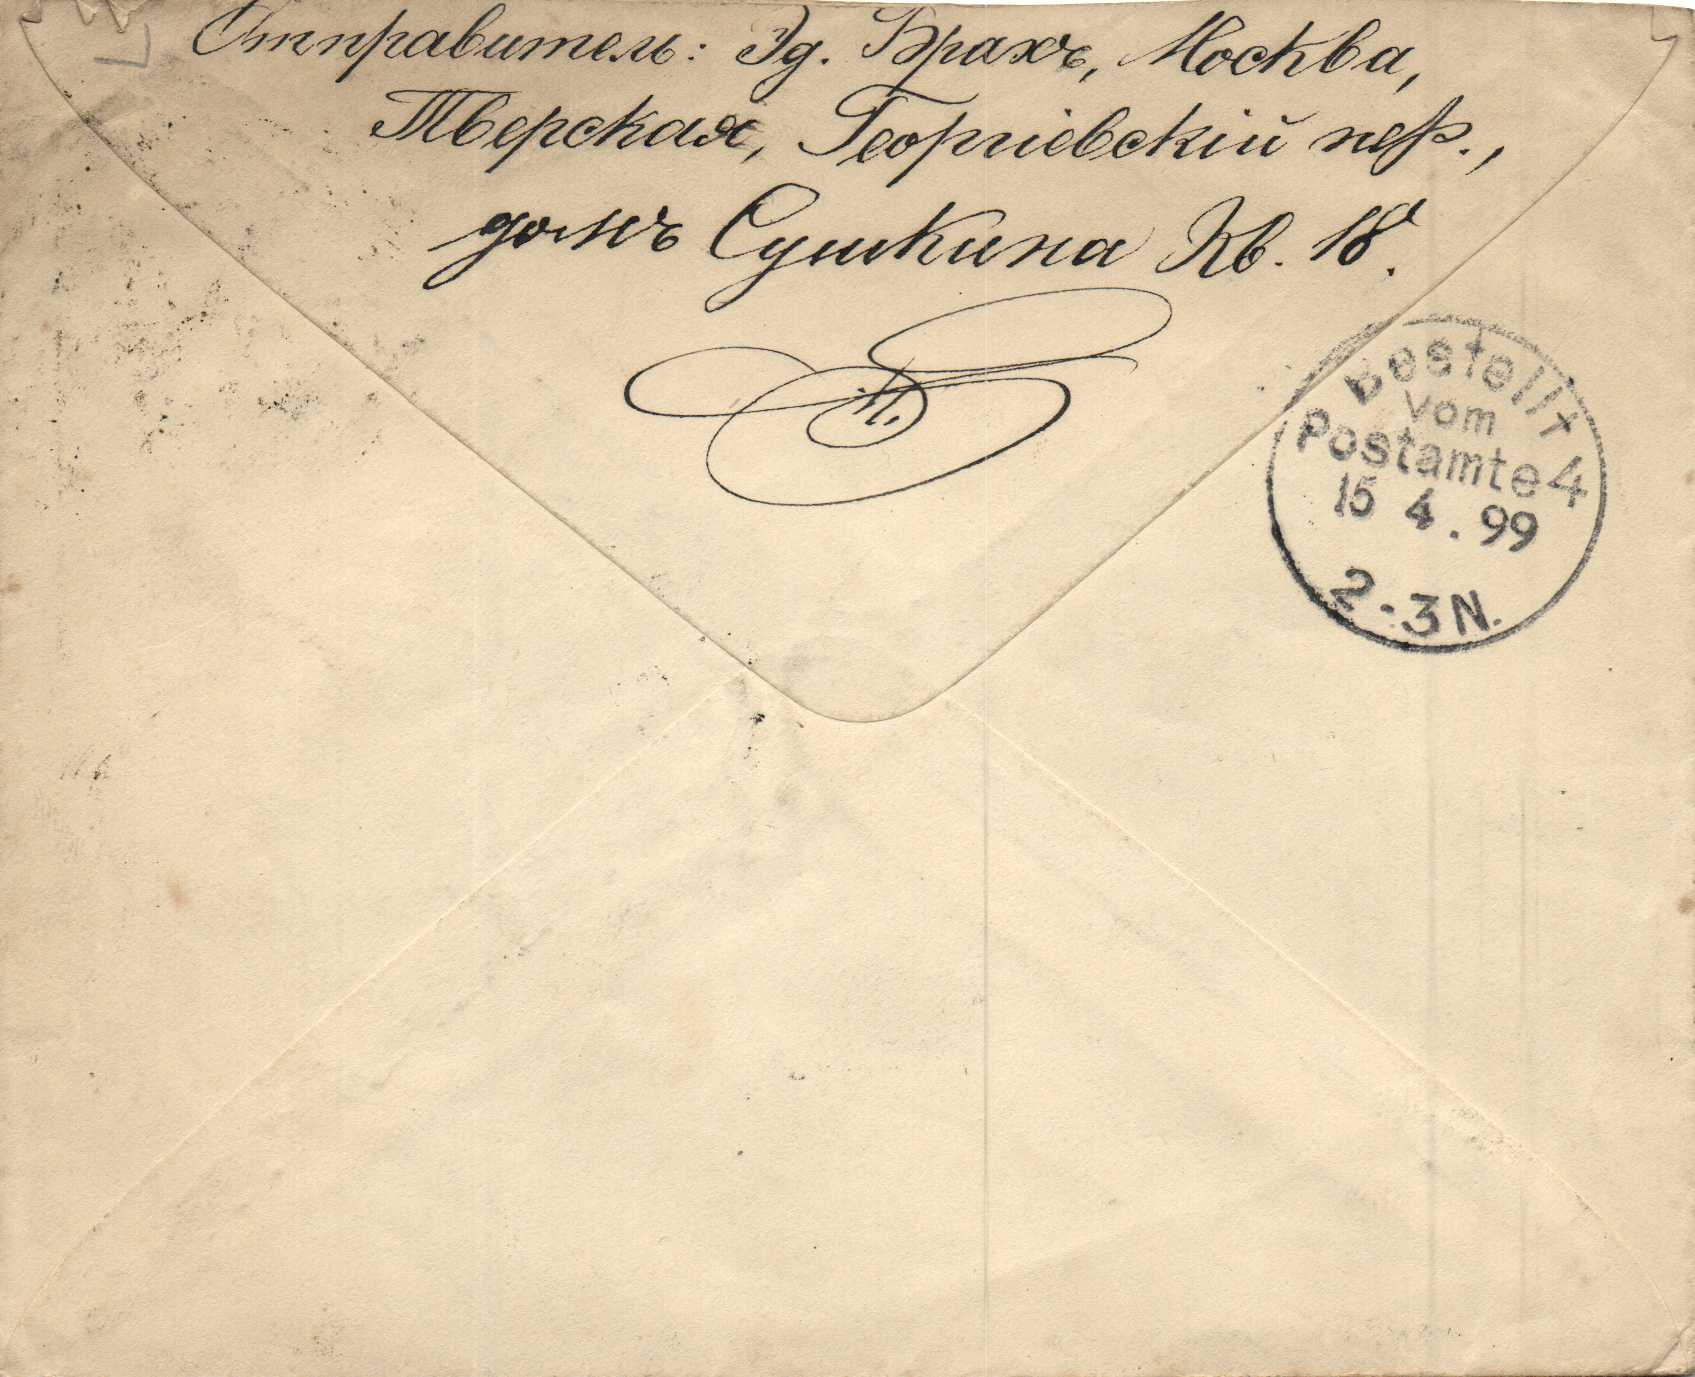 Отправитель: Эд. Брахъ, Москва,
Тверская, Георгіевскій пер.,
домъ Сушкина Кв. 18.
Bestellt
vom
Postamte 4
15 4. 99
2-3N.